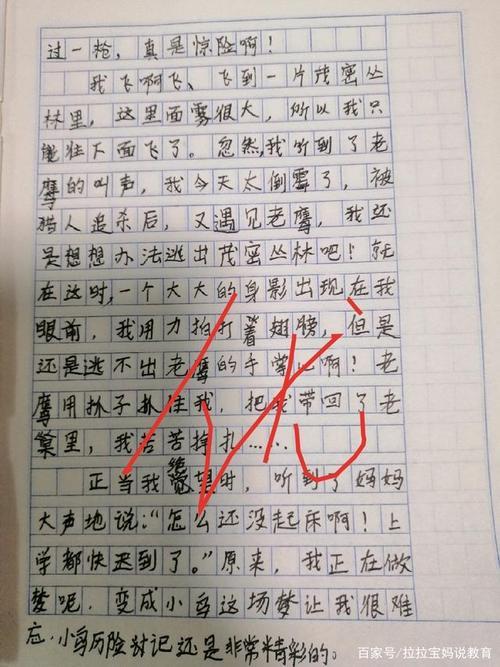 过一枪，真是惊险啊！
我飞啊飞、飞到一片茂密丛
林里，这里面雾很大，所以我只
能往下面飞了。忽然，我听到了老
鹰的叫声，我今天太倒霉了，被
猎人追杀后，又遇见老鹰，我还
是想想办法逃出茂密丛林吧！就
在这时，一个大大的身影出现在我
眼前，我用力拍打着翅膀，但是
还是逃不出老鹰的手掌心啊！老
鹰用爪子抓住我，把我带回了老
巢里，我苦苦挣扎……
正当我绝望时，听到了妈妈
大声地说：“怎么还没起床啊！上
学都快迟到了。”原来，我正在做
梦呢，变成小鸟这场梦让我很难
忘，小鸟历险对记还是非常精彩的。
百家号/拉拉宝妈说教育